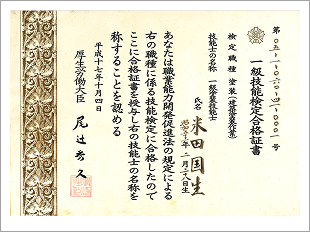 第〇五-1-〇六〇-四1-〇〇〇1号
一級技能検定合格証書
検定職種 塗装（建築塗装作業）
技能士の名称 一級塗装技能士
氏名 米田国生
二月二十八日生
あなたは職業能力開発促進法の規定による
右の職種に係る技能検定に合格したので
ここに合格証書を授与し右の技能士の名称を
称することを認める
平成十七年十月四日
厚生労働大臣 尾辻秀久